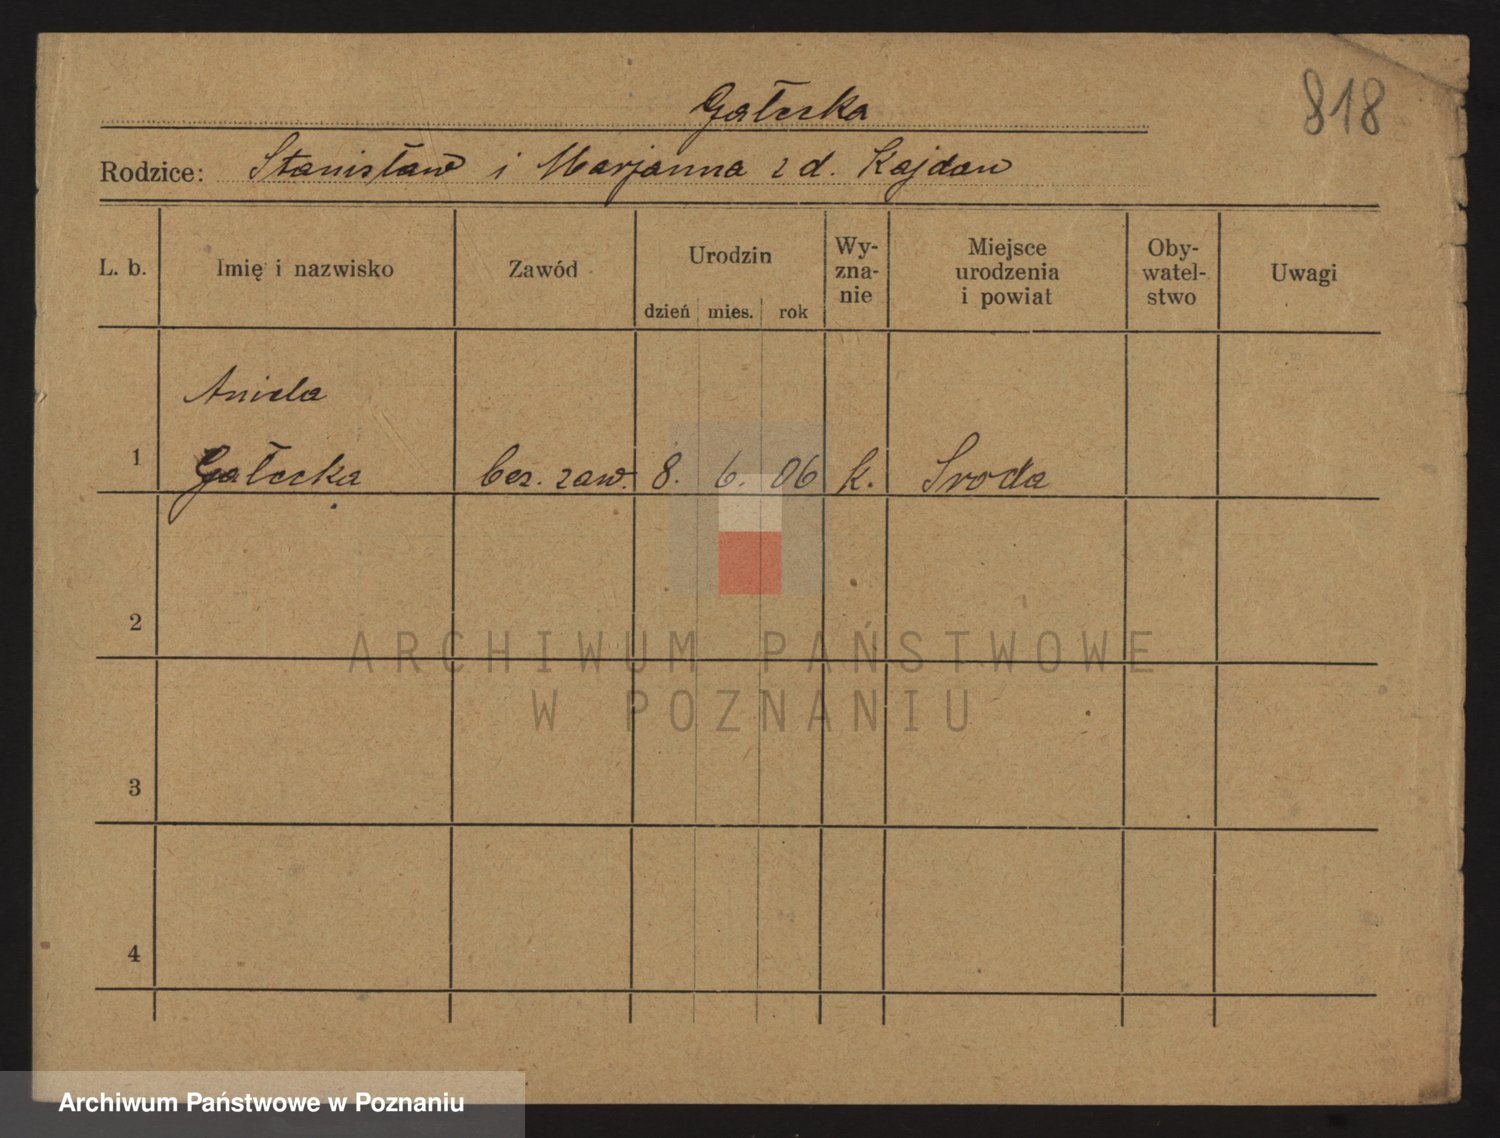 818
Gałecka
Rodzice: Stanisław i Marjanna z d. Kajdan
L. b.
Imię i nazwisko
Zawód
Urodzin
dzień mies. rok
Wy-
zna-
nie
Miejsce
urodzenia
i powiat
Oby-
watel-
stwo
Uwagi
Aniela
1 Gałecka bez. zaw. 8. 6. 06 k. Sroda
2
ARCHIWUM PAŃSTWOWE
W POZNANIU
3
4
Archiwum Państwowe w Poznaniu